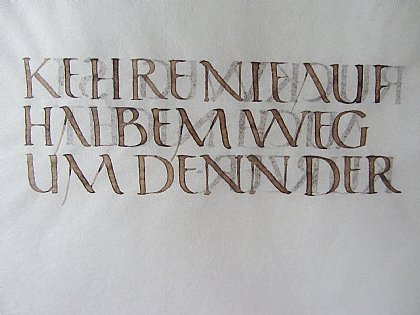 KEHRE NIE AUF
HALBEM WEG
UM DENN DER